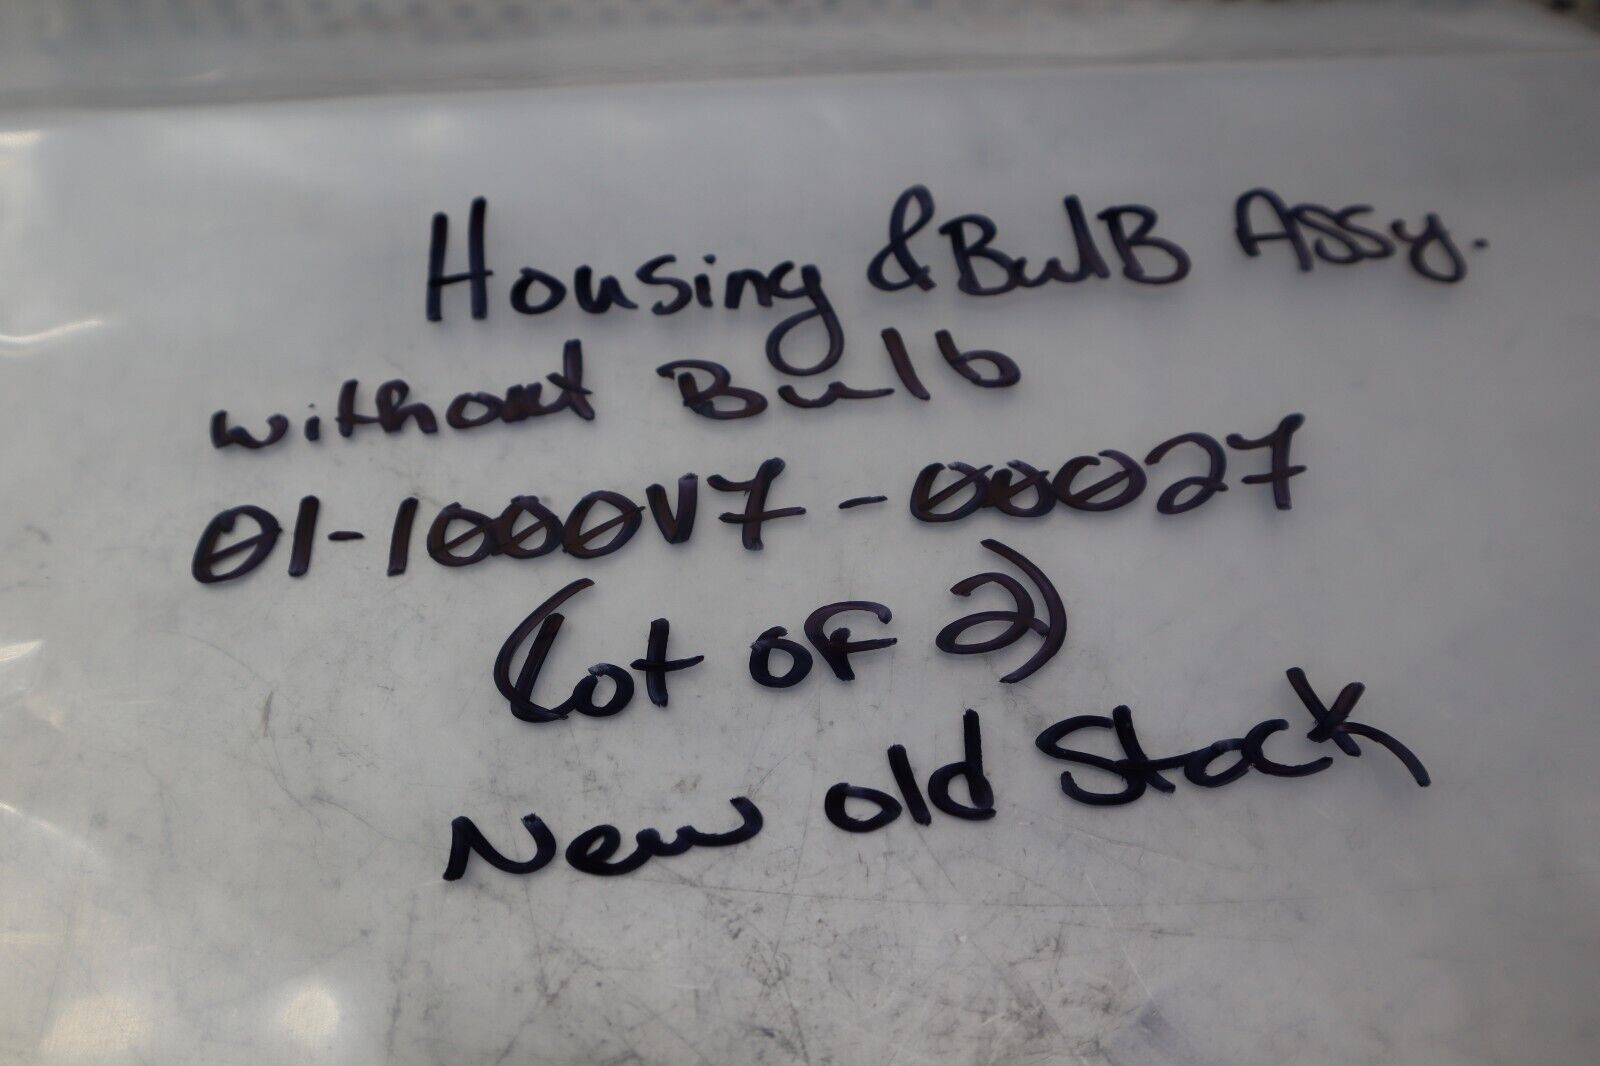 Housing & BulB Assy.
without Bulb
01-1000V7-00027
(Lot OF 2)
New old Stock